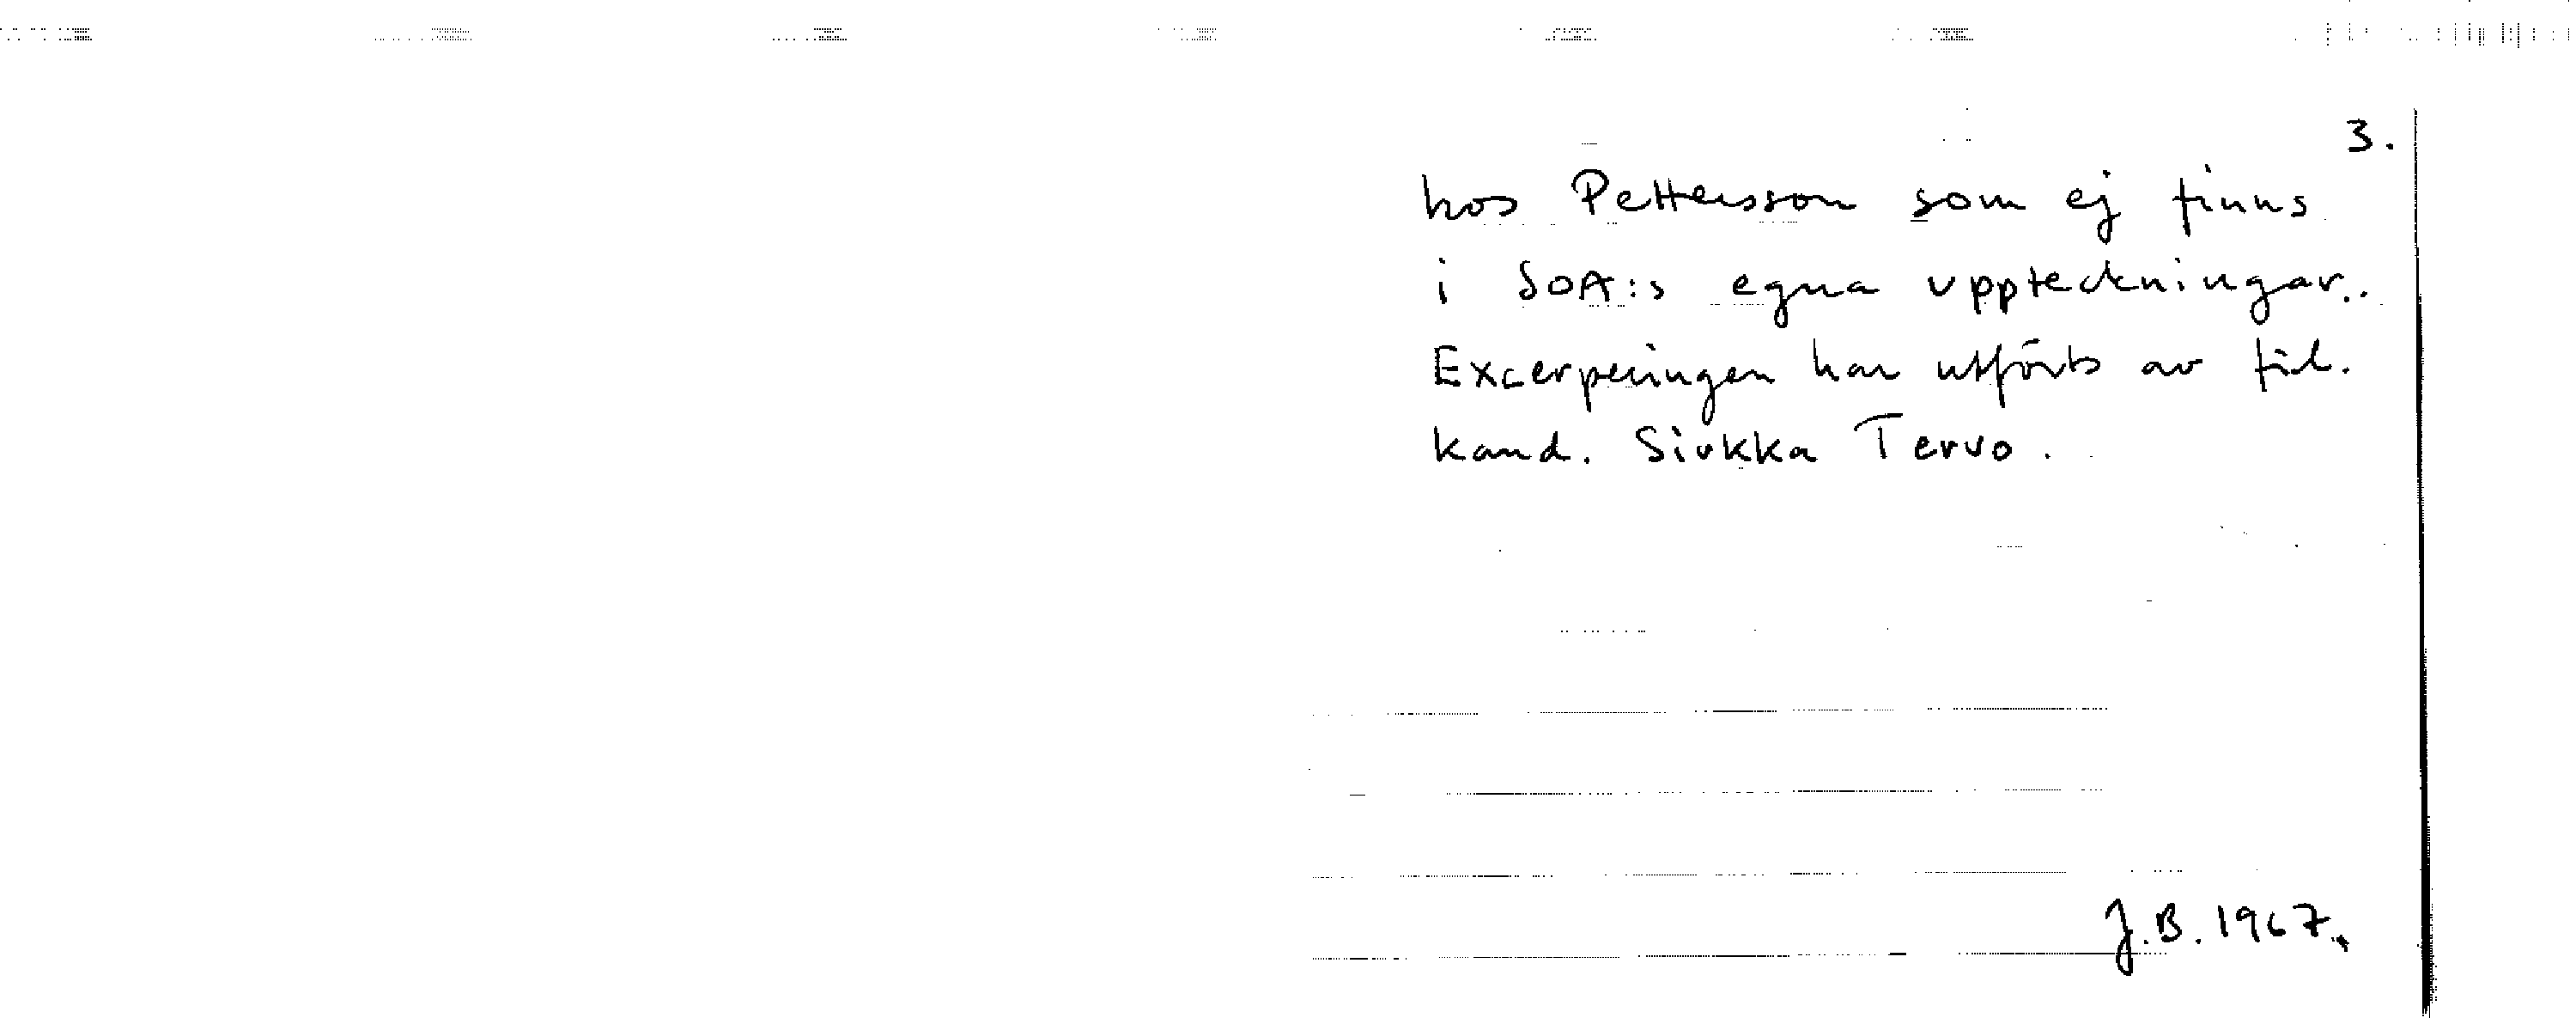 3.
hos Pettersson som ej finns
i SOA:s egna uppteckningar.
Excerperingen har utförts av fil.
kand. Sirkka Tervo.
J.B. 1967.